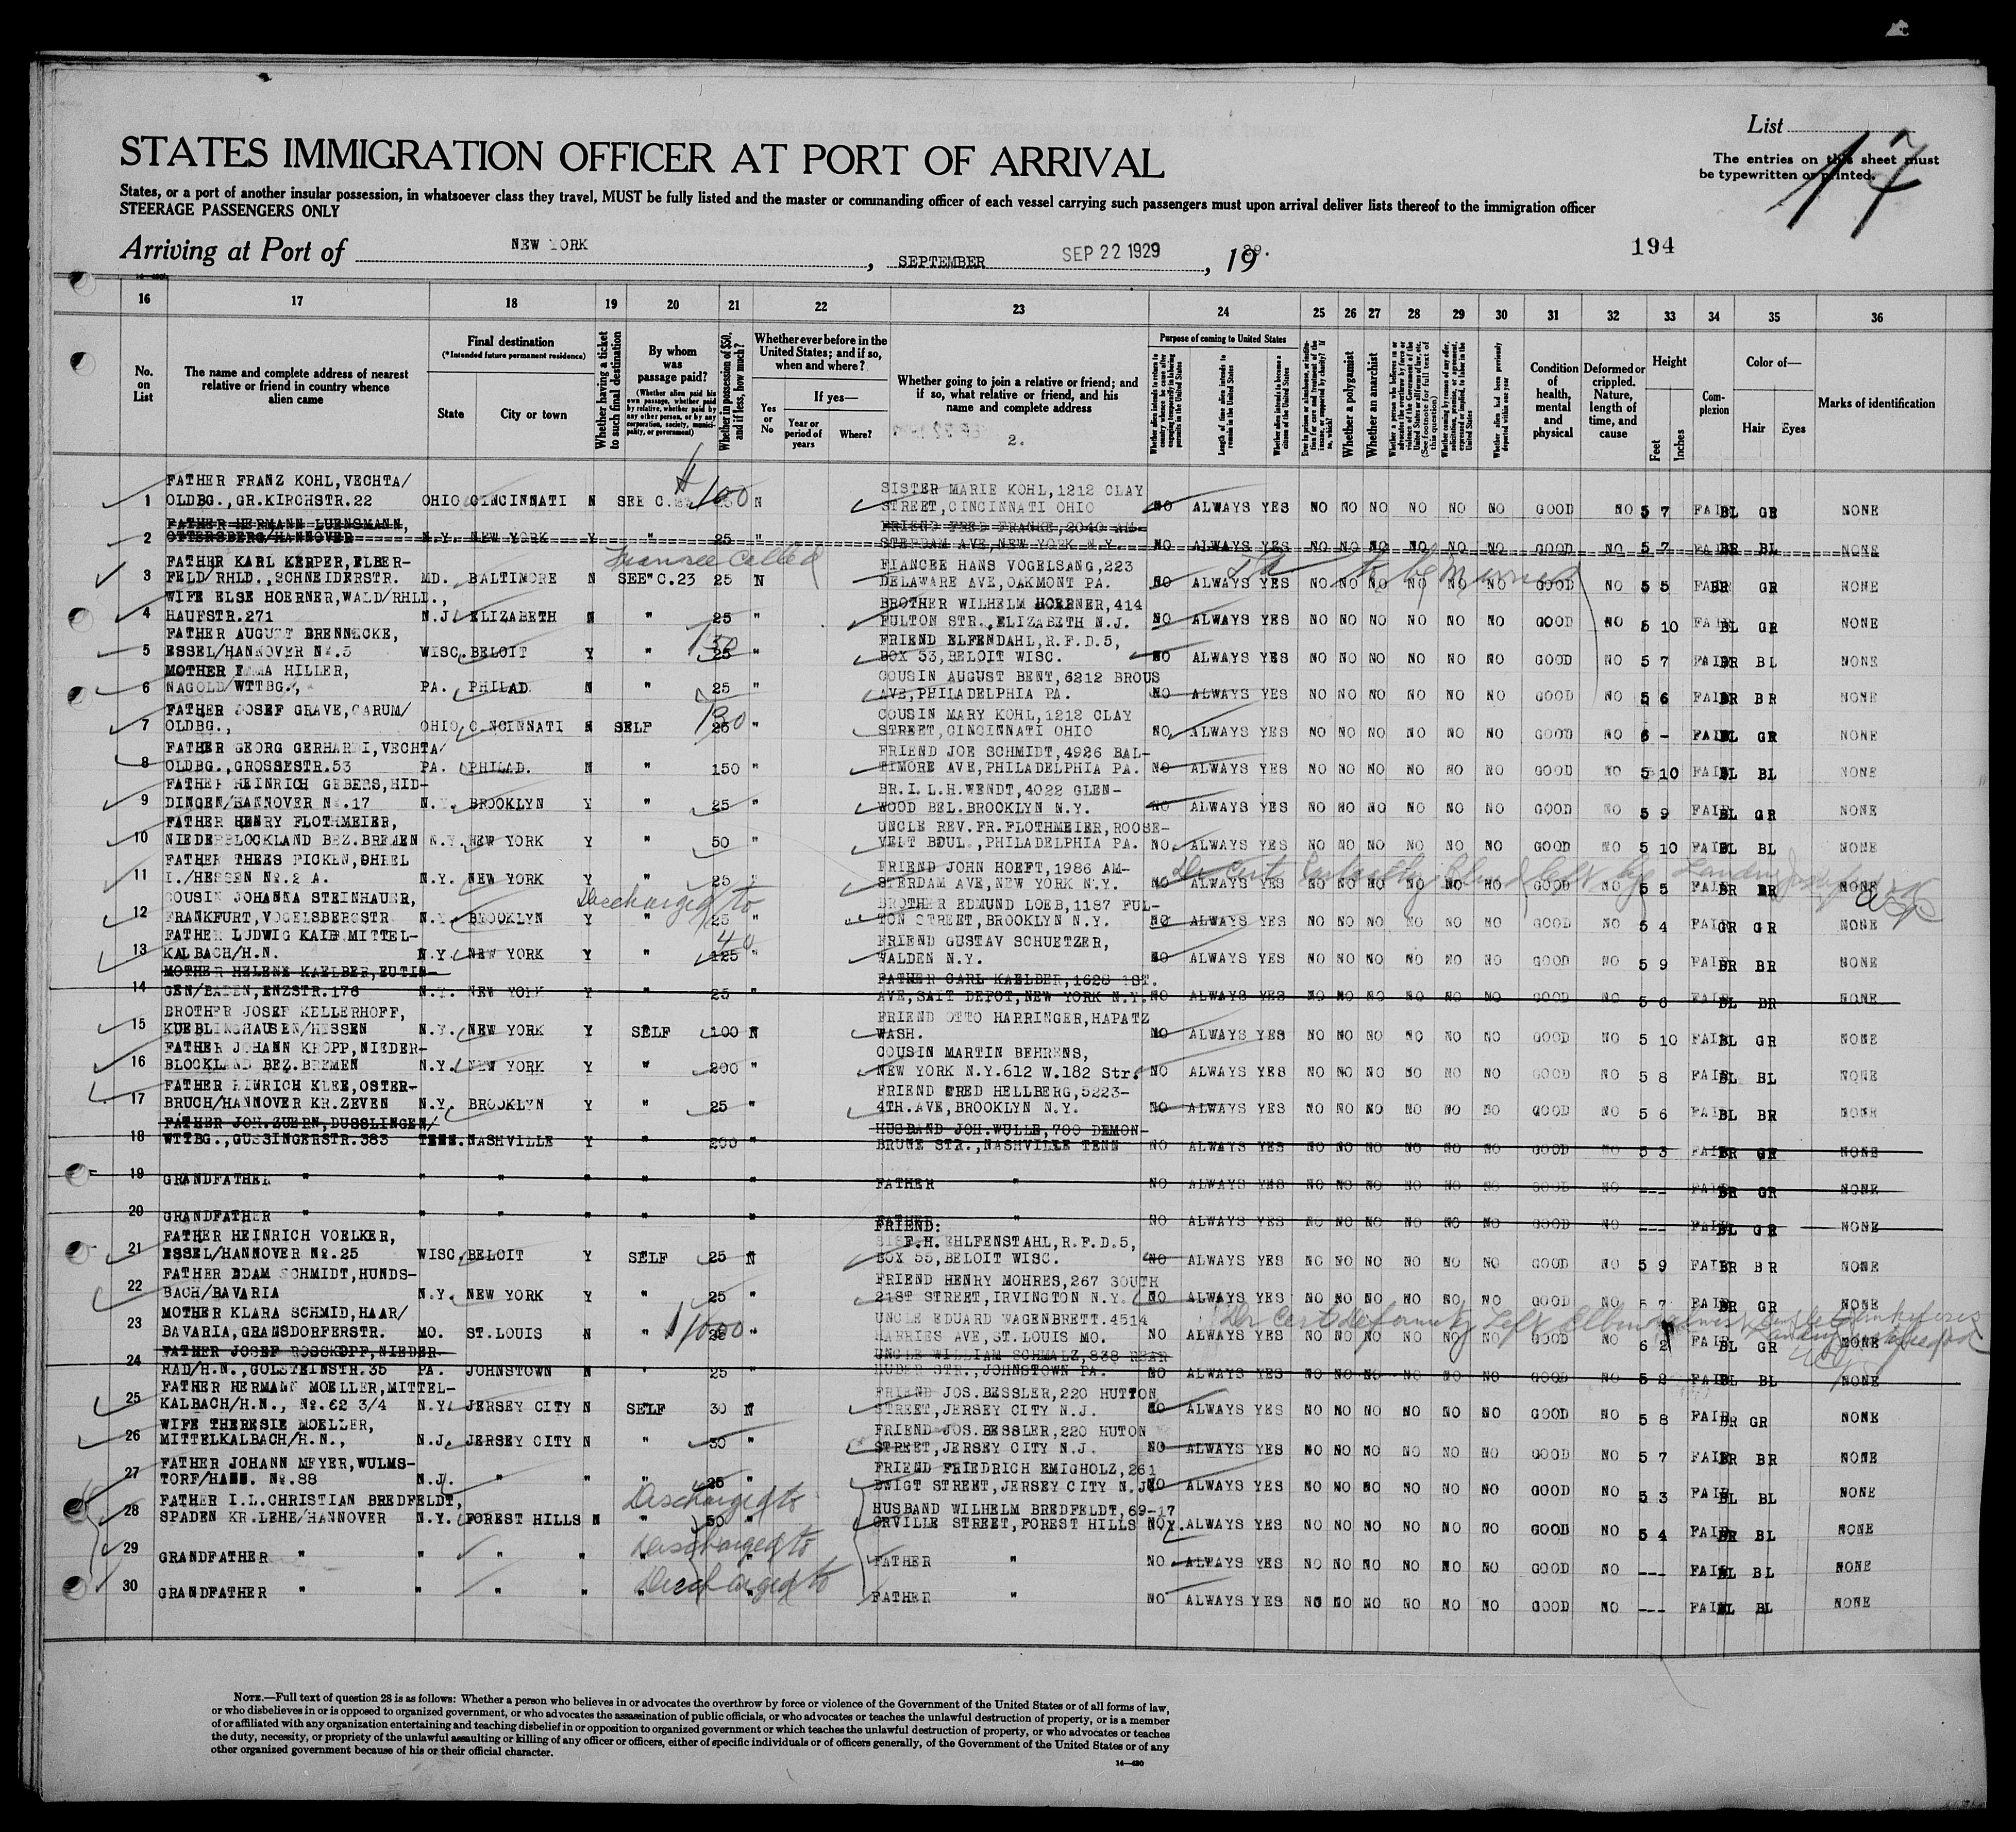 List
17
The entries on this sheet must
be typewritten or printed.
STATES IMMIGRATION OFFICER AT PORT OF ARRIVAL
States, or a port of another insular possession, in whatsoever class they travel, MUST be fully listed and the master or commanding officer of each vessel carrying such passengers must upon arrival deliver lists thereof to the immigration officer
STEERAGE PASSENGERS ONLY
Arriving at Port of NEW YORK, SEPTEMBER SEP 22 1929, 1929.
194
16 17 18 19 20 21 22 23 24 25 26 27 28 29 30 31 32 33 34 35 36
No. on List
The name and complete address of nearest relative or friend in country whence alien came
Final destination
(*Intended future permanent residence)
State
City or town
Whether having a ticket to such final destination
By whom was passage paid?
(Whether alien paid his own passage, whether paid by relative, whether paid by any other person, or by any corporation, society, municipality, or government)
Whether in possession of $50, and if less, how much?
Whether ever before in the United States; and if so, when and where?
Yes or No
If yes—
Year or period of years
Where?
Whether going to join a relative or friend; and if so, what relative or friend, and his name and complete address
2.
Purpose of coming to United States
Whether a polygamist
Whether an anarchist
Condition of health, mental and physical
Deformed or crippled. Nature, length of time, and cause
Height
Feet
Inches
Complexion
Color of—
Hair
Eyes
Marks of identification
FATHER FRANZ KOHL,VECHTA/ SISTER MARIE KOHL,1212 CLAY
1 OLDBG.,GR.KIRCHSTR.22 OHIO CINCINNATI N SEE C. 100 N STREET,CINCINNATI OHIO NO ALWAYS YES NO NO NO NO NO NO GOOD NO 5 7 FAIR BL GR NONE
FATHER HERMANN LUENSMANN, FRIEND FRED FRANKE,2040 AM-
2 OTTERSBERG/HANNOVER N.Y. NEW YORK Y " 25 " STERDAM AVE,NEW YORK N.Y. NO ALWAYS YES NO NO NO NO NO NO GOOD NO 5 7 FAIR BR BL NONE
Fiancee called to be married
FATHER KARL KERPER,ELBER- FIANCEE HANS VOGELSANG,223
3 FELD/RHLD.,SCHNEIDERSTR. MD. BALTIMORE N SEE"C.23 25 N DELAWARE AVE,OAKMONT PA. NO ALWAYS YES NO NO NO NO NO NO GOOD NO 5 5 FAIR BR GR NONE
WIFE ELSE HOERNER,WALD/RHLD., BROTHER WILHELM HOERNER,414
4 HAUFSTR.271 N.J. ELIZABETH N " 25 " FULTON STR.,ELIZABETH N.J. NO ALWAYS YES NO NO NO NO NO NO GOOD NO 5 10 FAIR BL GR NONE
FATHER AUGUST BRENNECKE, 130 FRIEND ELFENDAHL,R.F.D.5,
5 ESSEL/HANNOVER No.5 WISC. BELOIT Y " 25 " BOX 53,BELOIT WISC. NO ALWAYS YES NO NO NO NO NO NO GOOD NO 5 7 FAIR BR BL NONE
MOTHER EMMA HILLER, COUSIN AUGUST BENT,6212 BROUS
6 NAGOLD/WTTBG., PA. PHILAD. N " 25 " AVE,PHILADELPHIA PA. NO ALWAYS YES NO NO NO NO NO NO GOOD NO 5 6 FAIR BR BR NONE
FATHER JOSEF GRAVE,CARUM/ 130 COUSIN MARY KOHL,1212 CLAY
7 OLDBG., OHIO CINCINNATI N SELF 25 " STREET,CINCINNATI OHIO NO ALWAYS YES NO NO NO NO NO NO GOOD NO 6 - FAIR BL GR NONE
FATHER GEORG GERHARDI,VECHTA/ FRIEND JOE SCHMIDT,4926 BAL-
8 OLDBG.,GROSSESTR.53 PA. PHILAD. N " 150 " TIMORE AVE,PHILADELPHIA PA. NO ALWAYS YES NO NO NO NO NO NO GOOD NO 5 10 FAIR BL BL NONE
FATHER HEINRICH GEBERS,HID- BR.I.L.H.WENDT,4022 GLEN-
9 DINGEN/HANNOVER No.17 N.Y. BROOKLYN Y " 25 " WOOD BEL.BROOKLYN N.Y. NO ALWAYS YES NO NO NO NO NO NO GOOD NO 5 9 FAIR BL GR NONE
FATHER HENRY FLOTHMEIER, UNCLE REV.FR.FLOTHMEIER,ROOSE-
10 NIEDERBLOCKLAND BEZ.BREMEN N.Y. NEW YORK Y " 50 " VELT BOUL.,PHILADELPHIA PA. NO ALWAYS YES NO NO NO NO NO NO GOOD NO 5 10 FAIR BL BL NONE
FATHER THEES FICKEN,OHREL FRIEND JOHN HOEFT,1986 AM-
11 I./HESSEN No.2 A. N.Y. NEW YORK Y " 25 " STERDAM AVE,NEW YORK N.Y. NO ALWAYS YES NO NO NO NO NO NO GOOD NO 5 5 FAIR BR BR NONE
Discharged to
COUSIN JOHANNA STEINHAUER, BROTHER EDMUND LOEB,1187 FUL-
12 FRANKFURT,VOGELSBERGSTR N.Y. BROOKLYN Y " 25 " TON STREET,BROOKLYN N.Y. NO ALWAYS YES NO NO NO NO NO NO GOOD NO 5 4 FAIR GR GR NONE
FATHER LUDWIG KAIB MITTEL- 40 FRIEND GUSTAV SCHUETZER,
13 KALBACH/H.N. N.Y. NEW YORK Y " 125 " WALDEN N.Y. NO ALWAYS YES NO NO NO NO NO NO GOOD NO 5 9 FAIR BR BR NONE
MOTHER HELENE KAELBER,EUTIN- FATHER CARL KAELBER,1628 1ST.
14 GEN/BADEN,ENZSTR.176 N.Y. NEW YORK Y " 25 " AVE,SAIT DEPOT,NEW YORK N.Y. NO ALWAYS YES NO NO NO NO NO NO GOOD NO 5 6 FAIR BL BR NONE
BROTHER JOSEF KELLERHOFF, FRIEND OTTO HARRINGER,HAPATZ
15 KUEBLINGHAUSEN/HESSEN N.Y. NEW YORK Y SELF 100 N WASH. NO ALWAYS YES NO NO NO NO NO NO GOOD NO 5 10 FAIR BL GR NONE
FATHER JOHANN KROPP,NIEDER- COUSIN MARTIN BEHRENS,
16 BLOCKLAND BEZ.BREMEN N.Y. NEW YORK Y " 200 " NEW YORK N.Y.612 W.182 Str. NO ALWAYS YES NO NO NO NO NO NO GOOD NO 5 8 FAIR BL BL NONE
FATHER HINRICH KLEE,OSTER- FRIEND FRED HELLBERG,5223-
17 BRUCH/HANNOVER KR.ZEVEN N.Y. BROOKLYN Y " 25 " 4TH.AVE,BROOKLYN N.Y. NO ALWAYS YES NO NO NO NO NO NO GOOD NO 5 6 FAIR BL BR NONE
FATHER JOH.ZUERN,DUSSLINGEN/ HUSBAND JOH.WULLE,700 DEMON-
18 WTTBG.,GUSSINGERSTR.383 TENN. NASHVILLE Y " 200 " BRUNE STR.,NASHVILLE TENN NO ALWAYS YES NO NO NO NO NO NO GOOD NO 5 3 FAIR BR GR NONE
19 GRANDFATHER " " " " " " FATHER " NO ALWAYS YES NO NO NO NO NO NO GOOD NO --- FAIR BR GR NONE
20 GRANDFATHER " " " " " " FATHER " NO ALWAYS YES NO NO NO NO NO NO GOOD NO --- FAIR BL GR NONE
FRIEND:
FATHER HEINRICH VOELKER, F.H.EHLFENSTAHL,R.F.D.5,
21 ESSEL/HANNOVER No.25 WISC. BELOIT Y SELF 25 N BOX 55,BELOIT WISC. NO ALWAYS YES NO NO NO NO NO NO GOOD NO 5 9 FAIR BR BR NONE
FATHER ADAM SCHMIDT,HUNDS- FRIEND HENRY MOHRES,267 SOUTH
22 BACH/BAVARIA N.Y. NEW YORK Y " 25 " 21ST STREET,IRVINGTON N.Y. NO ALWAYS YES NO NO NO NO NO NO GOOD NO 5 7 FAIR BR GR NONE
Dr Cert deformity Left Elbow
MOTHER KLARA SCHMID,HAAR/ UNCLE EDUARD WAGENBRETT.4514
23 BAVARIA,GRANSDORFERSTR. MO. ST.LOUIS N " $1000 " HARRIES AVE,ST.LOUIS MO. NO ALWAYS YES NO NO NO NO NO NO GOOD NO 6 2 FAIR BL GR NONE
FATHER JOSEF ROSSKOPF,NIEDER- UNCLE WILLIAM SCHMALZ,838 REAR
24 RAD/H.N.,GOLSTEINSTR.35 PA. JOHNSTOWN N " 25 " HUBER STR.,JOHNSTOWN PA. NO ALWAYS YES NO NO NO NO NO NO GOOD NO 5 2 FAIR BL BL NONE
FATHER HERMANN MOELLER,MITTEL- FRIEND JOS.BESSLER,220 HUTTON
25 KALBACH/H.N., No.62 3/4 N.Y. JERSEY CITY N SELF 30 N STREET,JERSEY CITY N.J. NO ALWAYS YES NO NO NO NO NO NO GOOD NO 5 8 FAIR BR GR NONE
WIFE THERESIE MOELLER, FRIEND JOS.BESSLER,220 HUTON
26 MITTELKALBACH/H.N., N.J. JERSEY CITY N " 30 " STREET,JERSEY CITY N.J. NO ALWAYS YES NO NO NO NO NO NO GOOD NO 5 7 FAIR BR BR NONE
FATHER JOHANN MEYER,WULMS- FRIEND FRIEDRICH EMIGHOLZ,261
27 TORF/HANN. No.88 N.J. " " " 25 " DWIGT STREET,JERSEY CITY N.J. NO ALWAYS YES NO NO NO NO NO NO GOOD NO 5 3 FAIR BL BL NONE
Discharged to
FATHER I.L.CHRISTIAN BREDFELDT, HUSBAND WILHELM BREDFELDT,69-17
28 SPADEN KR.LEHE/HANNOVER N.Y. FOREST HILLS N " 50 " ORVILLE STREET,FOREST HILLS N.Y. NO ALWAYS YES NO NO NO NO NO NO GOOD NO 5 4 FAIR BR BL NONE
Discharged to
29 GRANDFATHER " " " " " " FATHER " NO ALWAYS YES NO NO NO NO NO NO GOOD NO --- FAIR BL BL NONE
Discharged to
30 GRANDFATHER " " " " " " FATHER " NO ALWAYS YES NO NO NO NO NO NO GOOD NO --- FAIR BL BL NONE
NOTE.—Full text of question 28 is as follows: Whether a person who believes in or advocates the overthrow by force or violence of the Government of the United States or of all forms of law,
or who disbelieves in or is opposed to organized government, or who advocates the assassination of public officials, or who advocates or teaches the unlawful destruction of property, or is a member
of or affiliated with any organization entertaining and teaching disbelief in or opposition to organized government or which teaches the unlawful destruction of property, or who advocates or teaches
the duty, necessity, or propriety of the unlawful assaulting or killing of any officer or officers, either of specific individuals or of officers generally, of the Government of the United States or of any
other organized government because of his or their official character.
14—430